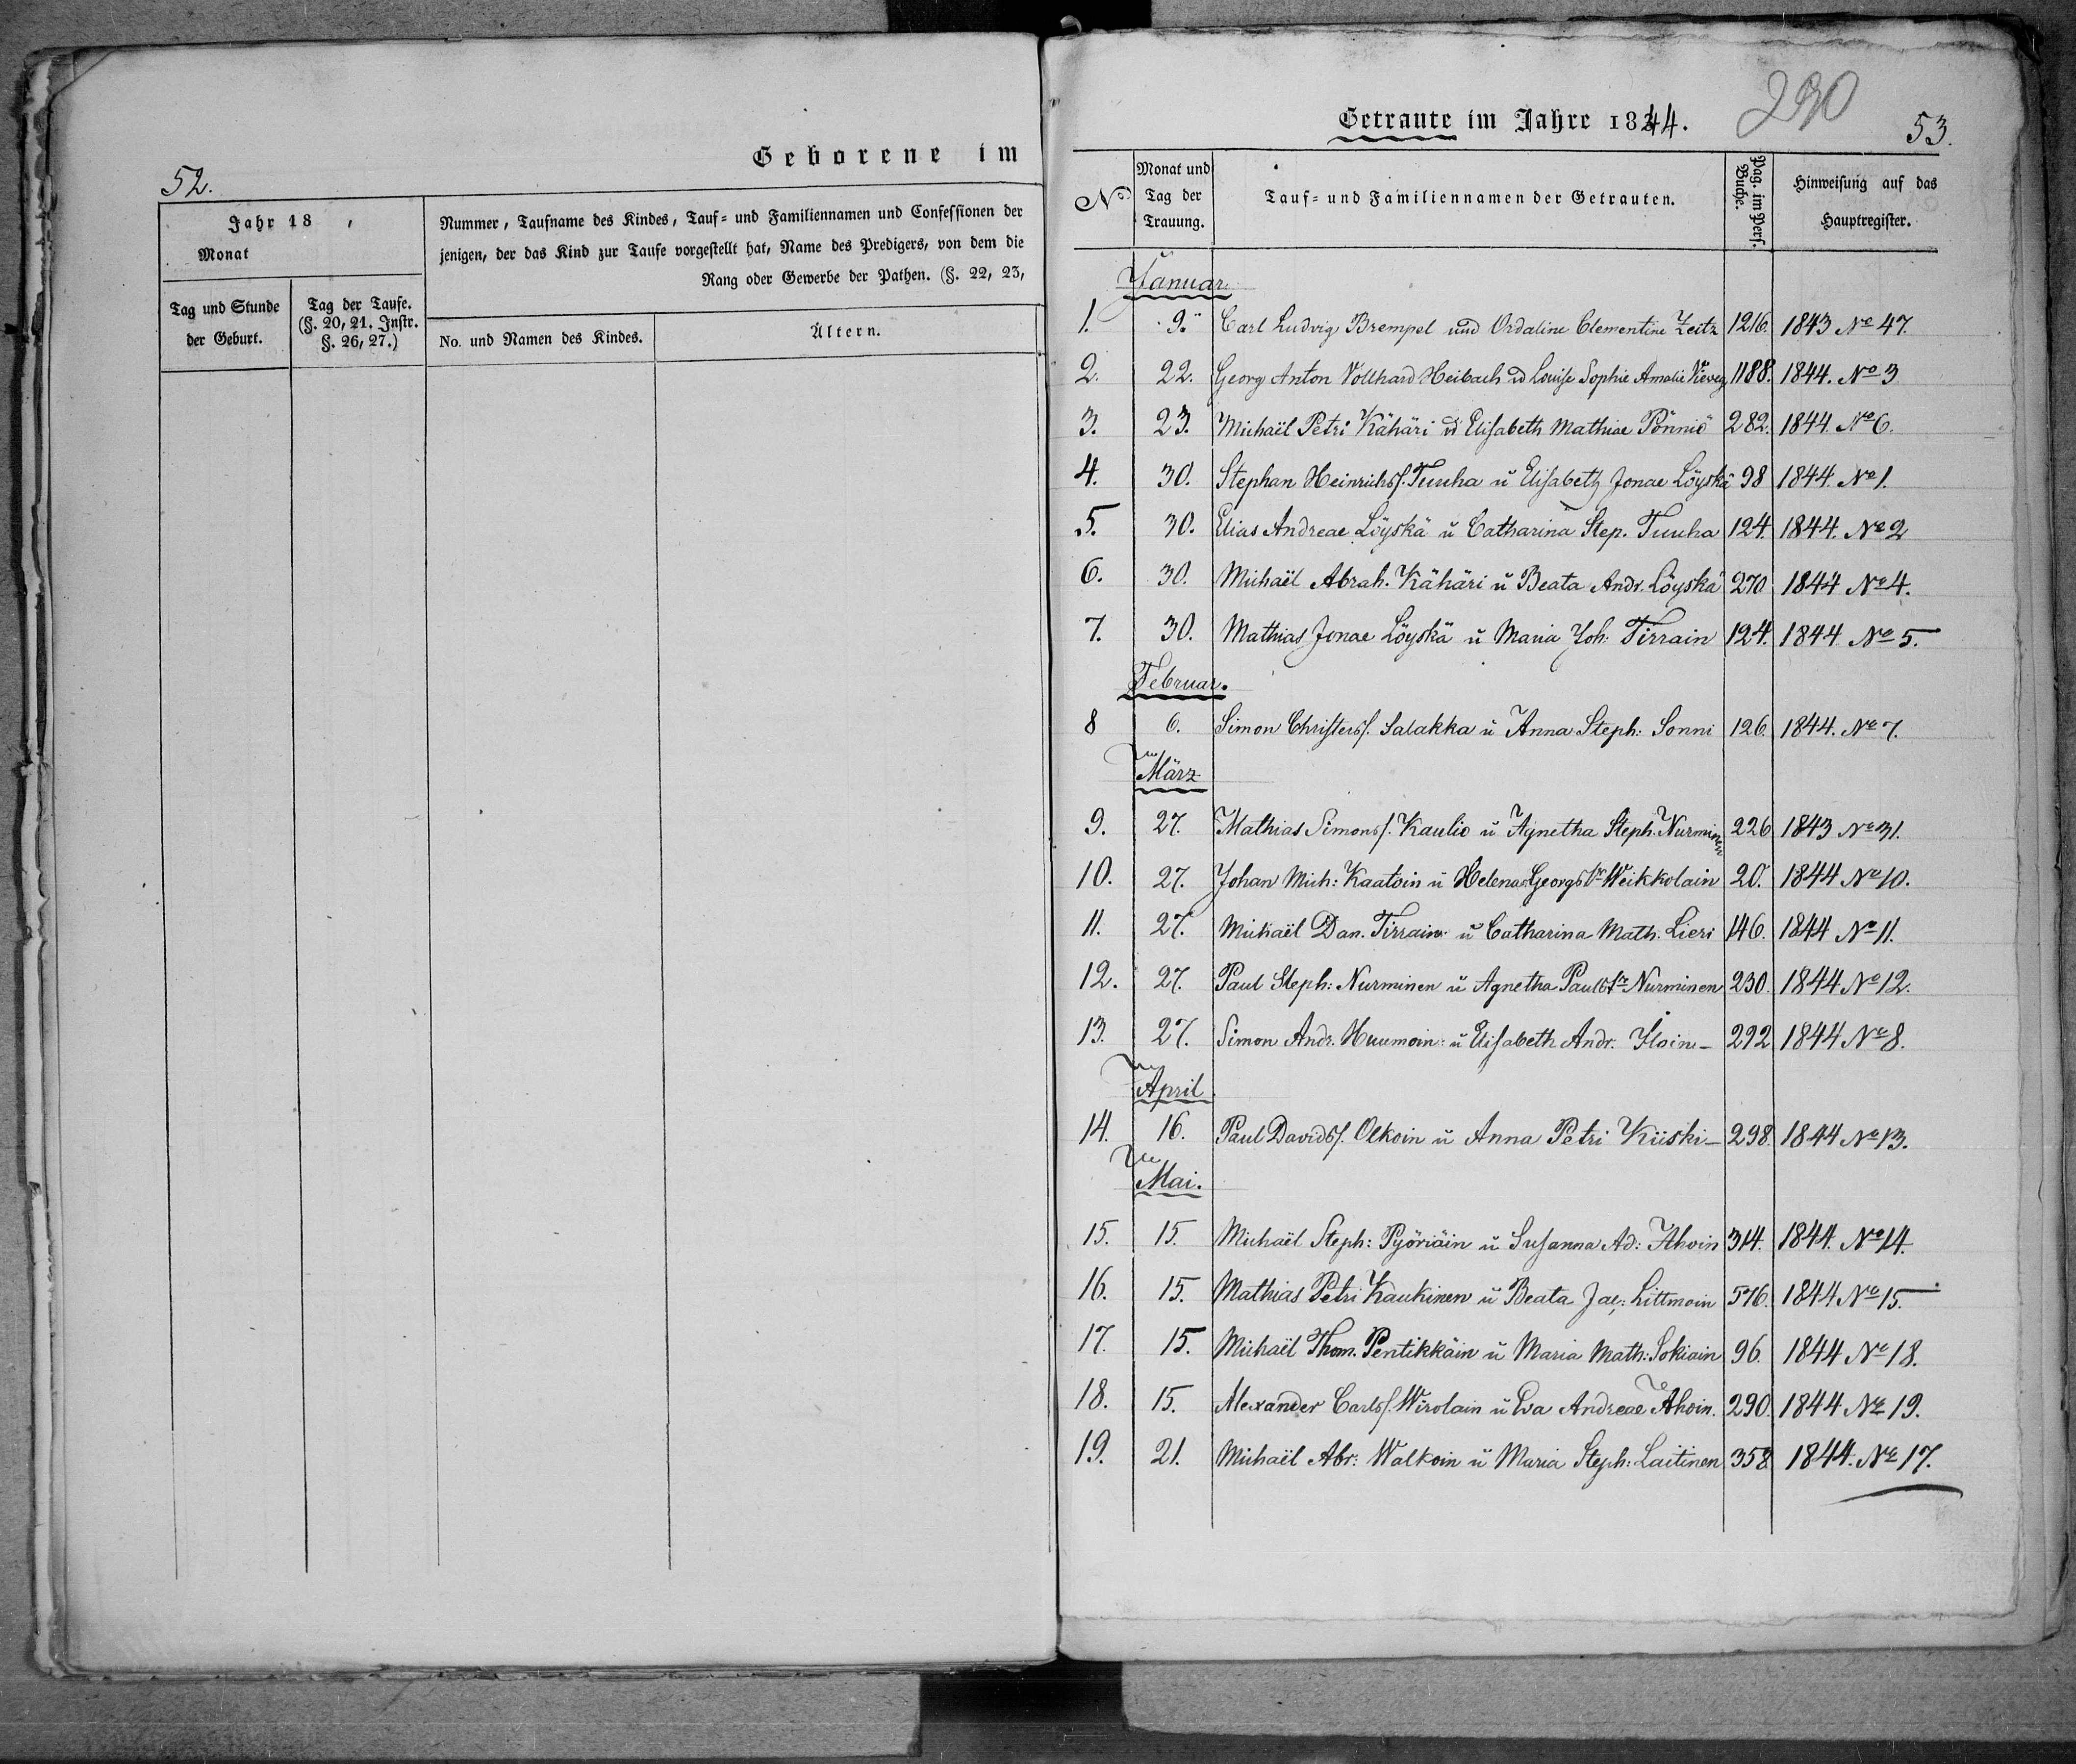 52.
Geborene im
Jahr 18 ,
Monat
Tag und Stunde
der Geburt.
Tag der Taufe.
(§. 20, 21. Instr.
§. 26, 27.)
Nummer, Taufname des Kindes, Tauf- und Familiennamen und Confessionen der
jenigen, der das Kind zur Taufe vorgestellt hat, Name des Predigers, von dem die
Rang oder Gewerbe der Pathen. (§. 22, 23,
No. und Namen des Kindes.
Ältern.
290
Getraute im Jahre 1844.
53.
No
Monat und
Tag der
Trauung.
Tauf- und Familiennamen der Getrauten.
Pag. im Pers.
Buche.
Hinweisung auf das
Hauptregister.
Januar
1. 9. Carl Ludvig Brempel und Ordaline Clementine Zeitz 1216. 1843 No 47.
2. 22. Georg Anton Vollhard Heibach ud Louise Sophie Amalie 1188. 1844. No 3
3. 23. Michaël Petri Kähäri ud Elisabeth Mathiae Pönniö 282. 1844. No 6.
4. 30. Stephan Heinrichss. Tuuha u Elisabeth Jonae Löyskä 98 1844. No 1.
5. 30. Elias Andreae Löyskä u Catharina Step. Tuuha 124. 1844. No 2
6. 30. Michaël Abrah. Kähäri u Beata Andr. Löyskä 270 1844 No 4.
7. 30. Mathias Jonae Löyskä u Maria Joh: Tirrain 124. 1844 No 5.
Februar.
8 6. Simon Christerss. Salakka u Anna Steph: Sonni 126. 1844. No 7.
März
9. 27. Mathias Simonss. Kaulio u Agnetha Steph. Nurminen 226 1843 No 31.
10. 27. Johan Mich: Kaatoin u Helena Georgs tr Weikkolain 20. 1844 No 10.
11. 27. Mickaël Dan. Tirrain u Catharina Math. Lieri 146. 1844 No 11.
12. 27. Paul Steph: Nurminen u Agnetha Pauls tr Nurminen 230. 1844 No 12.
13. 27. Simon Andr. Huumoin: u Elisabeth Andr. Iloin - 292 1844 No 8.
April
14. 16. Paul Davidss. Olkoin u Anna Petri Kiiski - 298. 1844 No 13.
Mai.
15. 15. Michaël Steph: Pyöriäin u Susanna Ad: Ahoin 314. 1844. No 14.
16. 15. Mathias Petri Kaukinen u Beata Jac: Littmoin 516. 1844 No 15.
17. 15. Michaël Thom. Pentikkäin u Maria Math: Sokiain 96. 1844 No 18.
18. 15. Alexander Carlss. Wirolain u Eva Andreae Ahoin. 290. 1844 No 19.
19. 21. Michaël Abr: Walkoin u Maria Steph: Laitinen 358 1844. No 17.